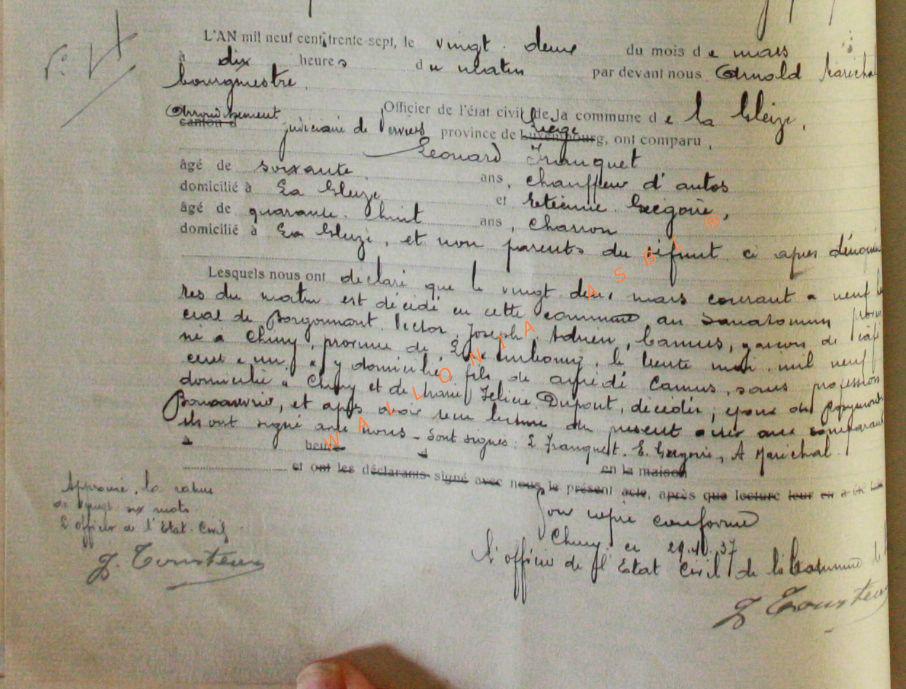 L'AN mil neuf cent trente-sept, le vingt deux du mois de mars
à dix heures du matin par devant nous Arnold Maréchal
bourgmestre.
Arrondissement Officier de l'état civil de la commune de La Gleize,
canton d judiciaire de Verviers province de Liège Luxembourg, ont comparu,
Léonard Franquet
âgé de soixante ans, chauffeur d'autos
domicilié à La Gleize et Etienne Grégoire,
âgé de quarante huit ans, charron
domicilié à La Gleize, et non parents du défunt ci après dénommé
Lesquels nous ont déclaré que le vingt deux mars courant à neuf heu
res du matin est décédé en cette commune au Sanatorium provin
cial de Borgoumont Victor Joseph Adrien, Camus, garçon de café
né à Chiny, province de Luxembourg, le trente mai mil neuf
cent et un, y domicilié, fils de Alfrédé Camus, sans profession
domicilié à Chiny et de Marie Félicie Dupont, décédée, époux de
et après avoir reçu lecture du présent acte aux comparants
ils ont signé avec nous - Sont signés: L Franquet. E. Grégoire, A Maréchal.
à heure
en la maison
et ont les déclarants signé avec nous le présent acte, après que lecture leur en a été
Approuvé, la rature
de vingt six mots
L'officier de l'Etat-Civil
Pour copie conforme
Chiny, ce 29.10.37
L'officier de l'Etat Civil de la Commune
WALLONIA ASBL ©